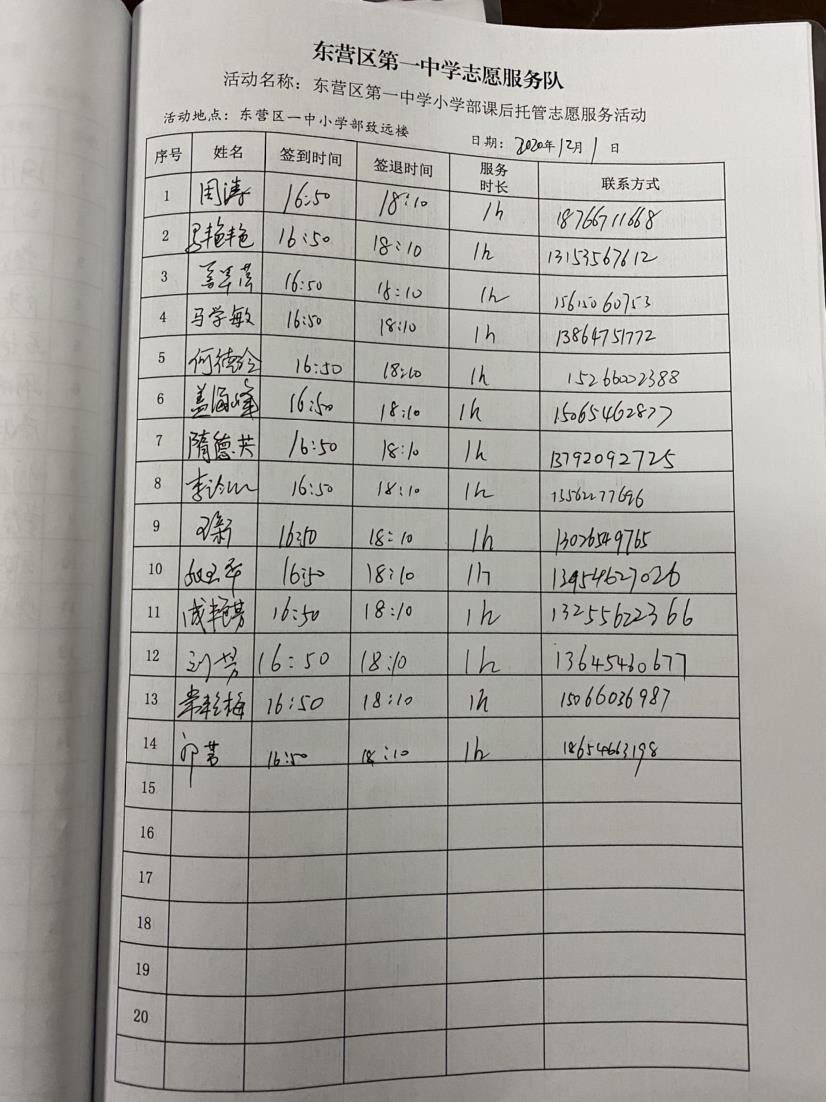 东营区第一中学志愿服务队
活动名称：东营区第一中学小学部课后托管志愿服务活动
活动地点：东营区一中小学部致远楼 日期：2020年12月1日
序号 姓名 签到时间 签退时间 服务时长 联系方式
1 周涛 16:50 18:10 1h 18766711668
2 马艳艳 16:50 18:10 1h 13153567612
3 16:50 18:10 1h 15615060753
4 马学敏 16:50 18:10 1h 13864751772
5 何德玲 16:50 18:10 1h 15266002388
6 盖海峰 16:50 18:10 1h 15065462877
7 隋德芸 16:50 18:10 1h 13792092725
8 16:50 18:10 1h 13562277696
9 16:50 18:10 1h 13026549765
10 16:50 18:10 1h 13954627026
11 成艳芳 16:50 18:10 1h 13255622366
12 刘芳 16:50 18:10 1h 13645430677
13 常彩梅 16:50 18:10 1h 15066036987
14 16:50 18:10 1h 18654663198
15
16
17
18
19
20